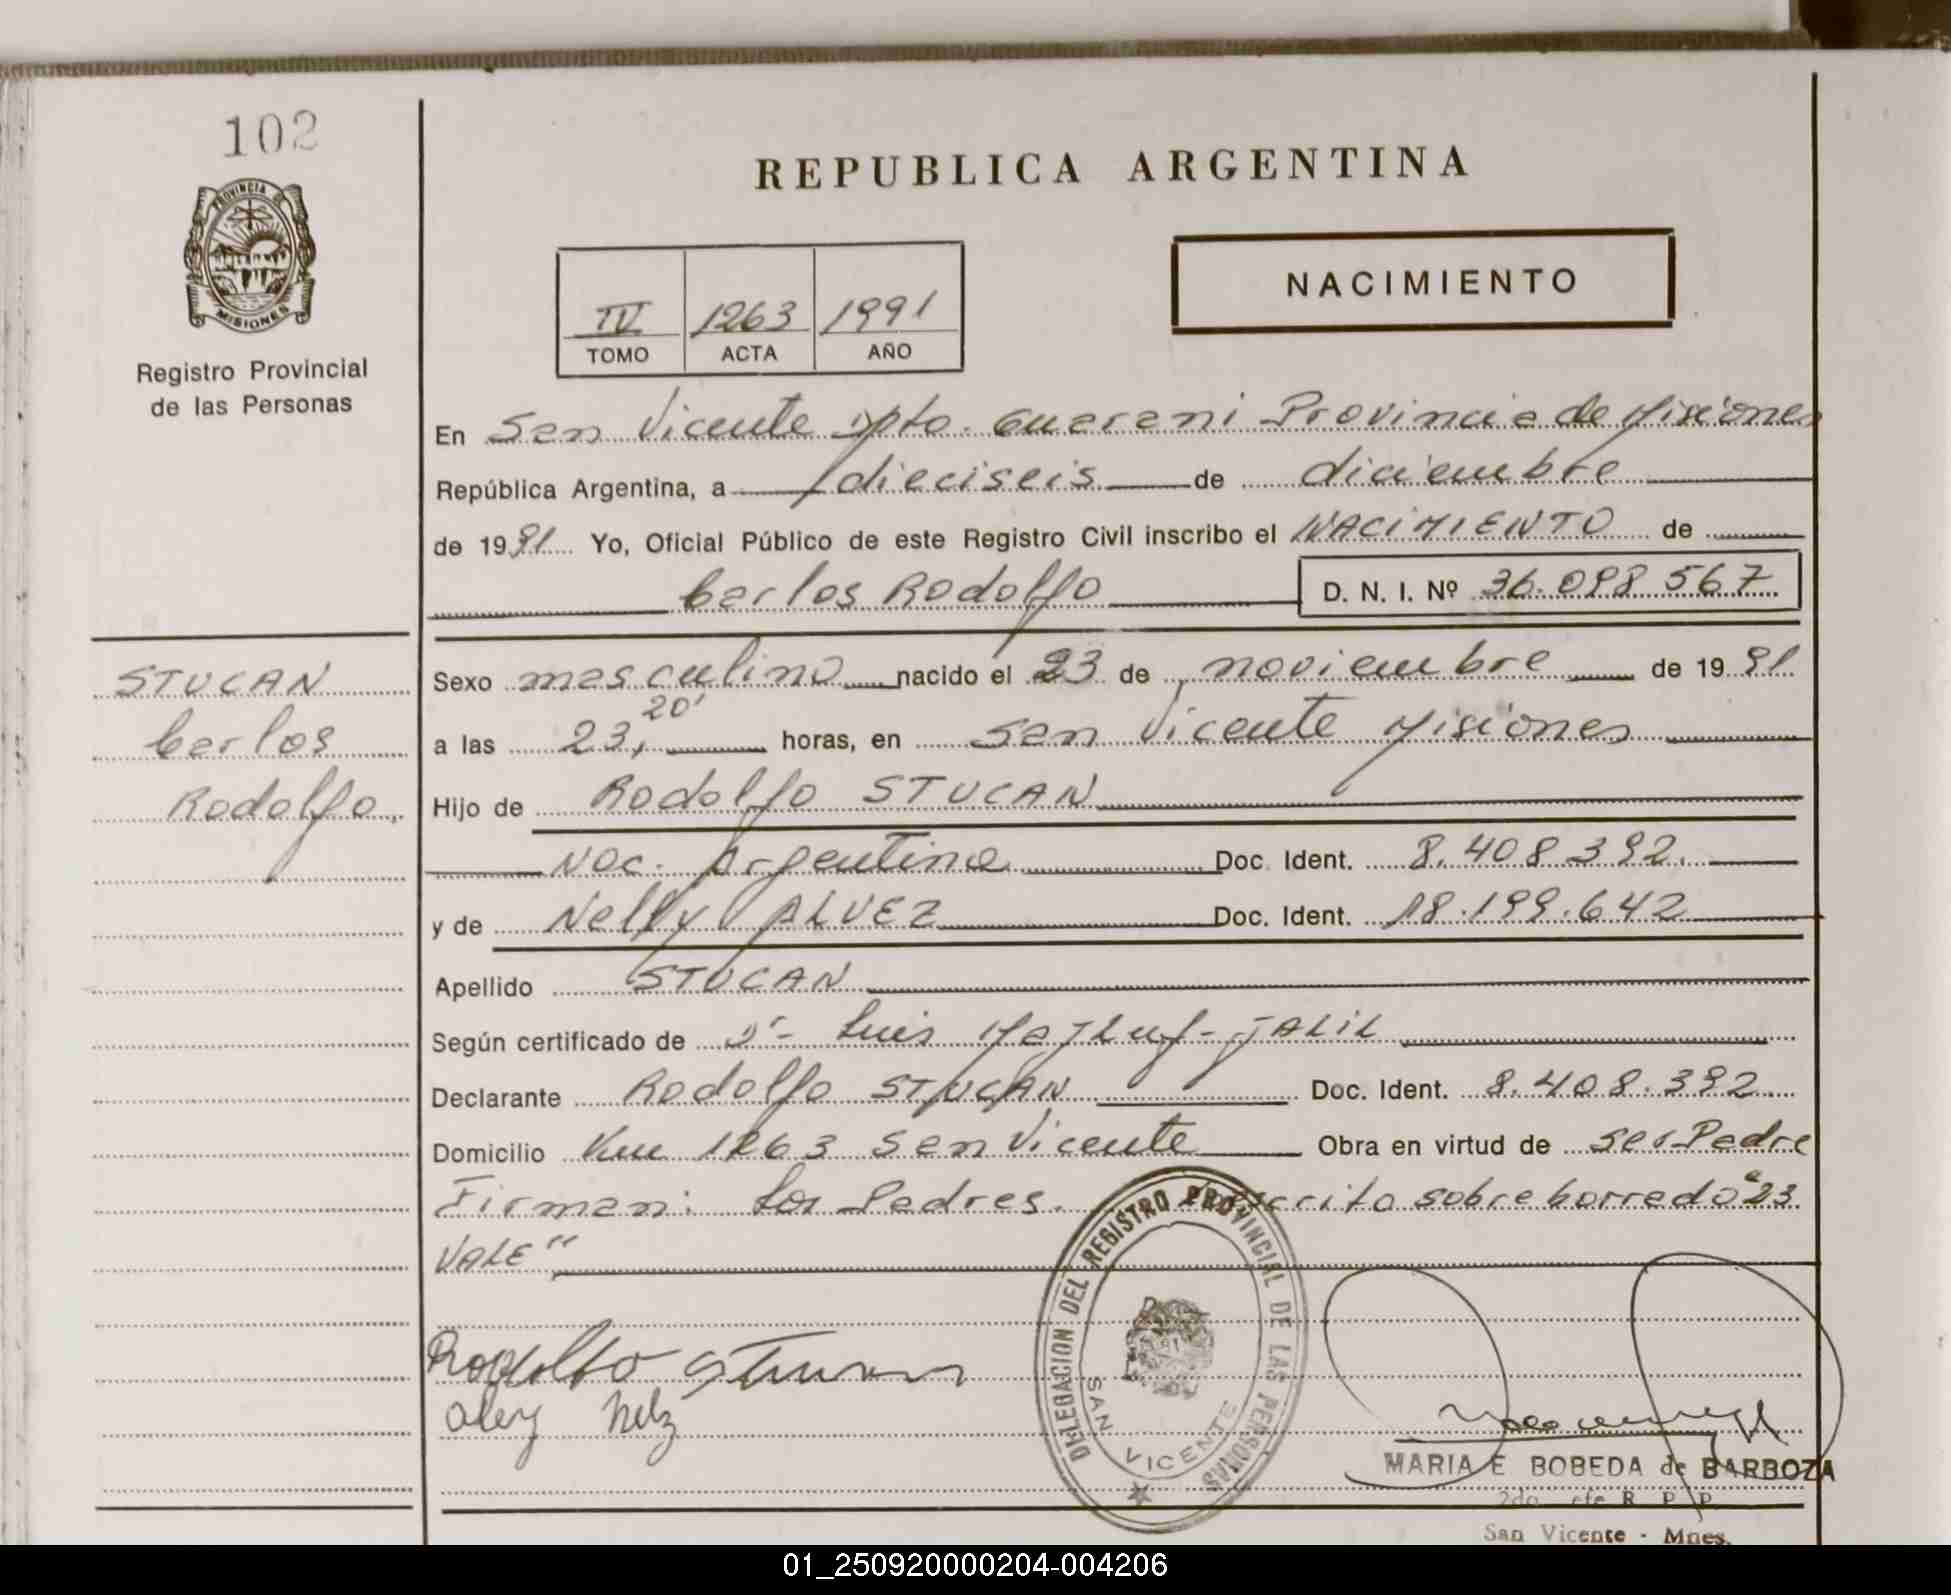 102
REPUBLICA ARGENTINA
PROVINCIA DE
MISIONES
Registro Provincial
de las Personas
NACIMIENTO
IV 1263 1991
TOMO ACTA AÑO
En San Vicente Dpto. Guarani Provincia de Misiones
República Argentina, a dieciseis de diciembre
de 1991 Yo, Oficial Público de este Registro Civil inscribo el NACIMIENTO de
Carlos Rodolfo D. N. I. Nº 36.098.567
STUCAN
Carlos
Rodolfo,
Sexo masculino nacido el 23 de noviembre de 1991
a las 23,20' horas, en San Vicente Misiones
Hijo de Rodolfo STUCAN
Nac. Argentina Doc. Ident. 8.408.392.
y de Nelly ALVEZ Doc. Ident. 18.199.642
Apellido STUCAN
Según certificado de Dr. Luis Majluf-JALIL
Declarante Rodolfo STUCAN Doc. Ident. 8.408.392.
Domicilio Km 1263 San Vicente Obra en virtud de ser Padre
Firman: Los Padres. sobre borrado "23
VALE"
Rodolfo Stucan
DELEGACION DEL REGISTRO PROVINCIAL DE LAS PERSONAS
SAN VICENTE
MARIA E BOBEDA de BARBOZA
2do. Jefe R. P. P.
San Vicente - Mnes.
01_250920000204-004206